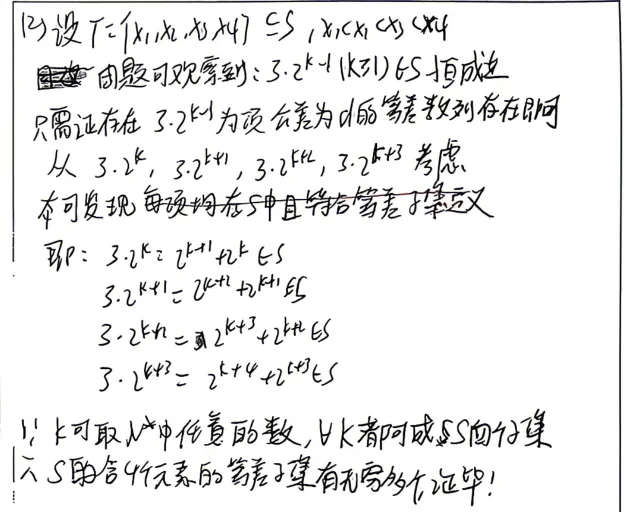 (2) 设 T={x₁,x₂,x₃,x₄}⊆S, x₁<x₂<x₃<x₄
由题可观察到: 3·2^{k-1} (k≥1) ∈S 恒成立
只需证存在 3·2^{k-1} 为项 公差为d的等差数列存在即可
从 3·2^k, 3·2^{k+1}, 3·2^{k+2}, 3·2^{k+3} 考虑
可发现每项均在S中且符合等差子集定义
即: 3·2^k = 2^{k+1}+2^k ∈S
3·2^{k+1} = 2^{k+2}+2^{k+1} ∈S
3·2^{k+2} = 2^{k+3}+2^{k+2} ∈S
3·2^{k+3} = 2^{k+4}+2^{k+3} ∈S
∵ k可取N*中任意的数, ∀k都可成S的子集
∴ S的含4个元素的等差子集有无穷多个, 证毕!